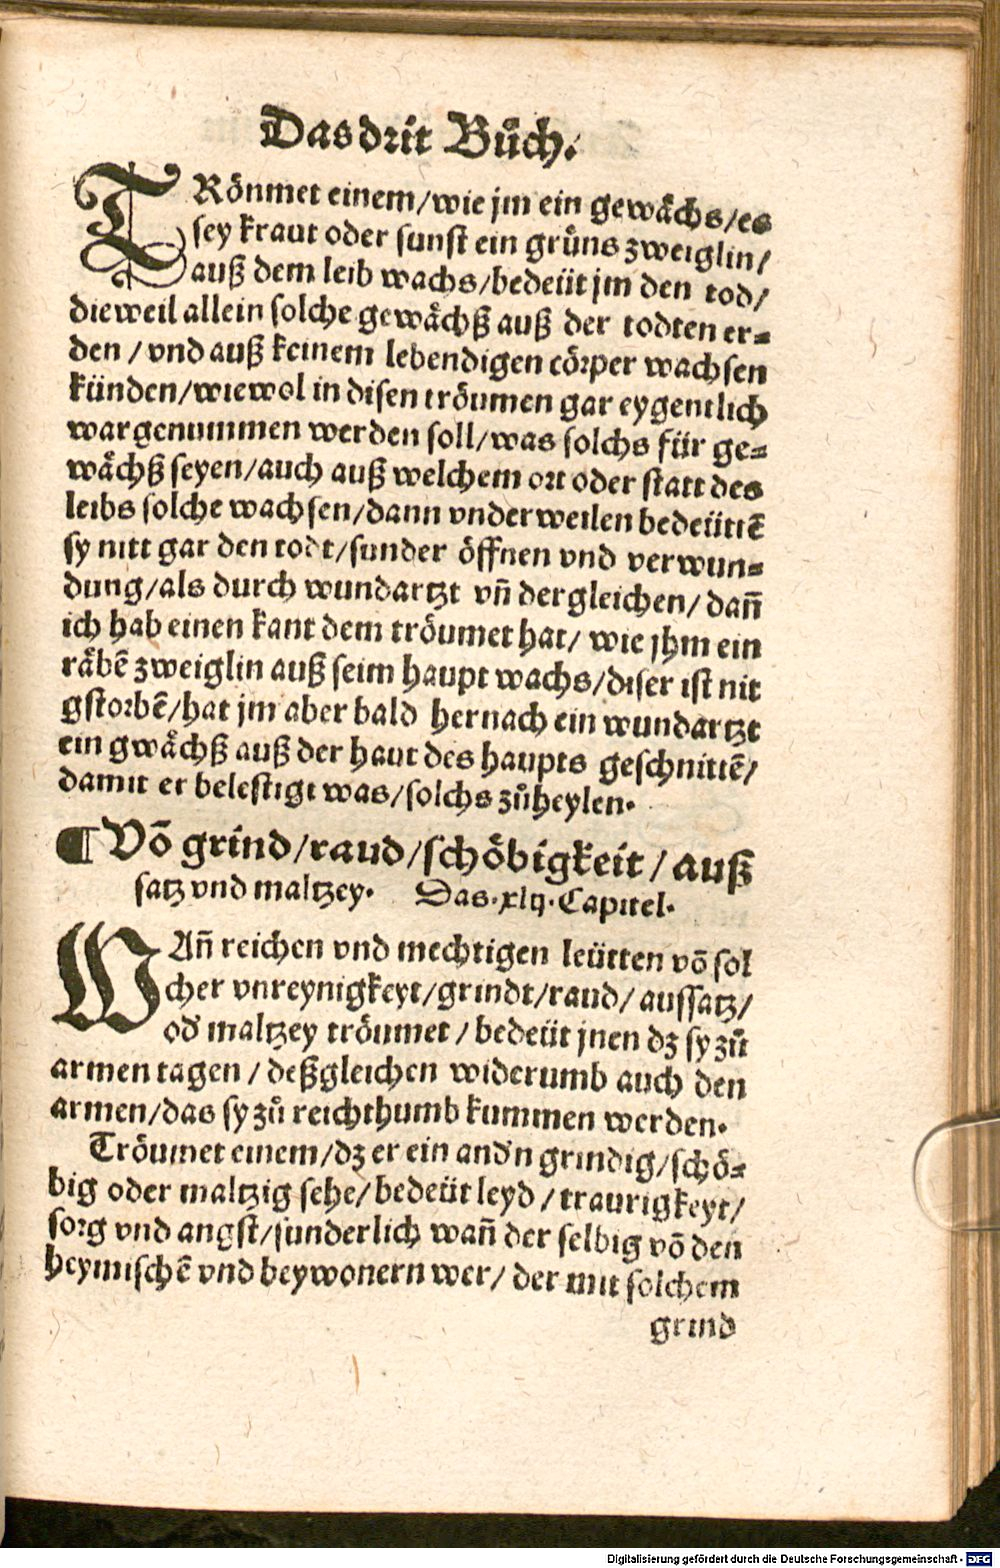 Das drit Bůch.
TRöumet einem/wie jm ein gewächs/es
sey kraut oder sunst ein grüns zweiglin/
auß dem leib wachs/bedeüt jm den tod/
dieweil allein solche gewächß auß der todten er⸗
den/vnd auß keinem lebendigen cörper wachsen
künden/wiewol in disen tröumen gar eygentlich
war genummen werden soll/was solchs für ge⸗
wächß seyen/auch auß welchem ort oder statt des
leibs solche wachsen/dann vnderweilen bedeüttē
sy nitt gar den todt/sunder öffnen vnd verwun⸗
dung/als durch wundartzt vñ dergleichen/dañ
ich hab einen kant dem tröumet hat/wie jhm ein
räbē zweiglin auß seim haupt wachs/diser ist nit
gstorbē/hat jm aber bald hernach ein wundartzt
ein gwächß auß der haut des haupts geschnittē/
damit er belestigt was/solchs zůheylen.
¶ Vō grind/raud/schöbigkeit/auß
satz vnd maltzey. Das.xlij.Capitel.
WAñ reichen vnd mechtigen leütten vō sol
cher vnreynigkeyt/grindt/raud/aussatz/
od' maltzey tröumet/bedeüt jnen dz sy zů
armen tagen/deßgleichen widerumb auch den
armen/das sy zů reichthumb kummen werden.
Tröumet einem/dz er ein and'n grindig/schö⸗
big oder maltzig sehe/bedeüt leyd/traurigkeyt/
sorg vnd angst/sunderlich wañ der selbig vō den
heymischē vnd beywonern wer/der mit solchem
grind
Digitalisierung gefördert durch die Deutsche Forschungsgemeinschaft - DFG